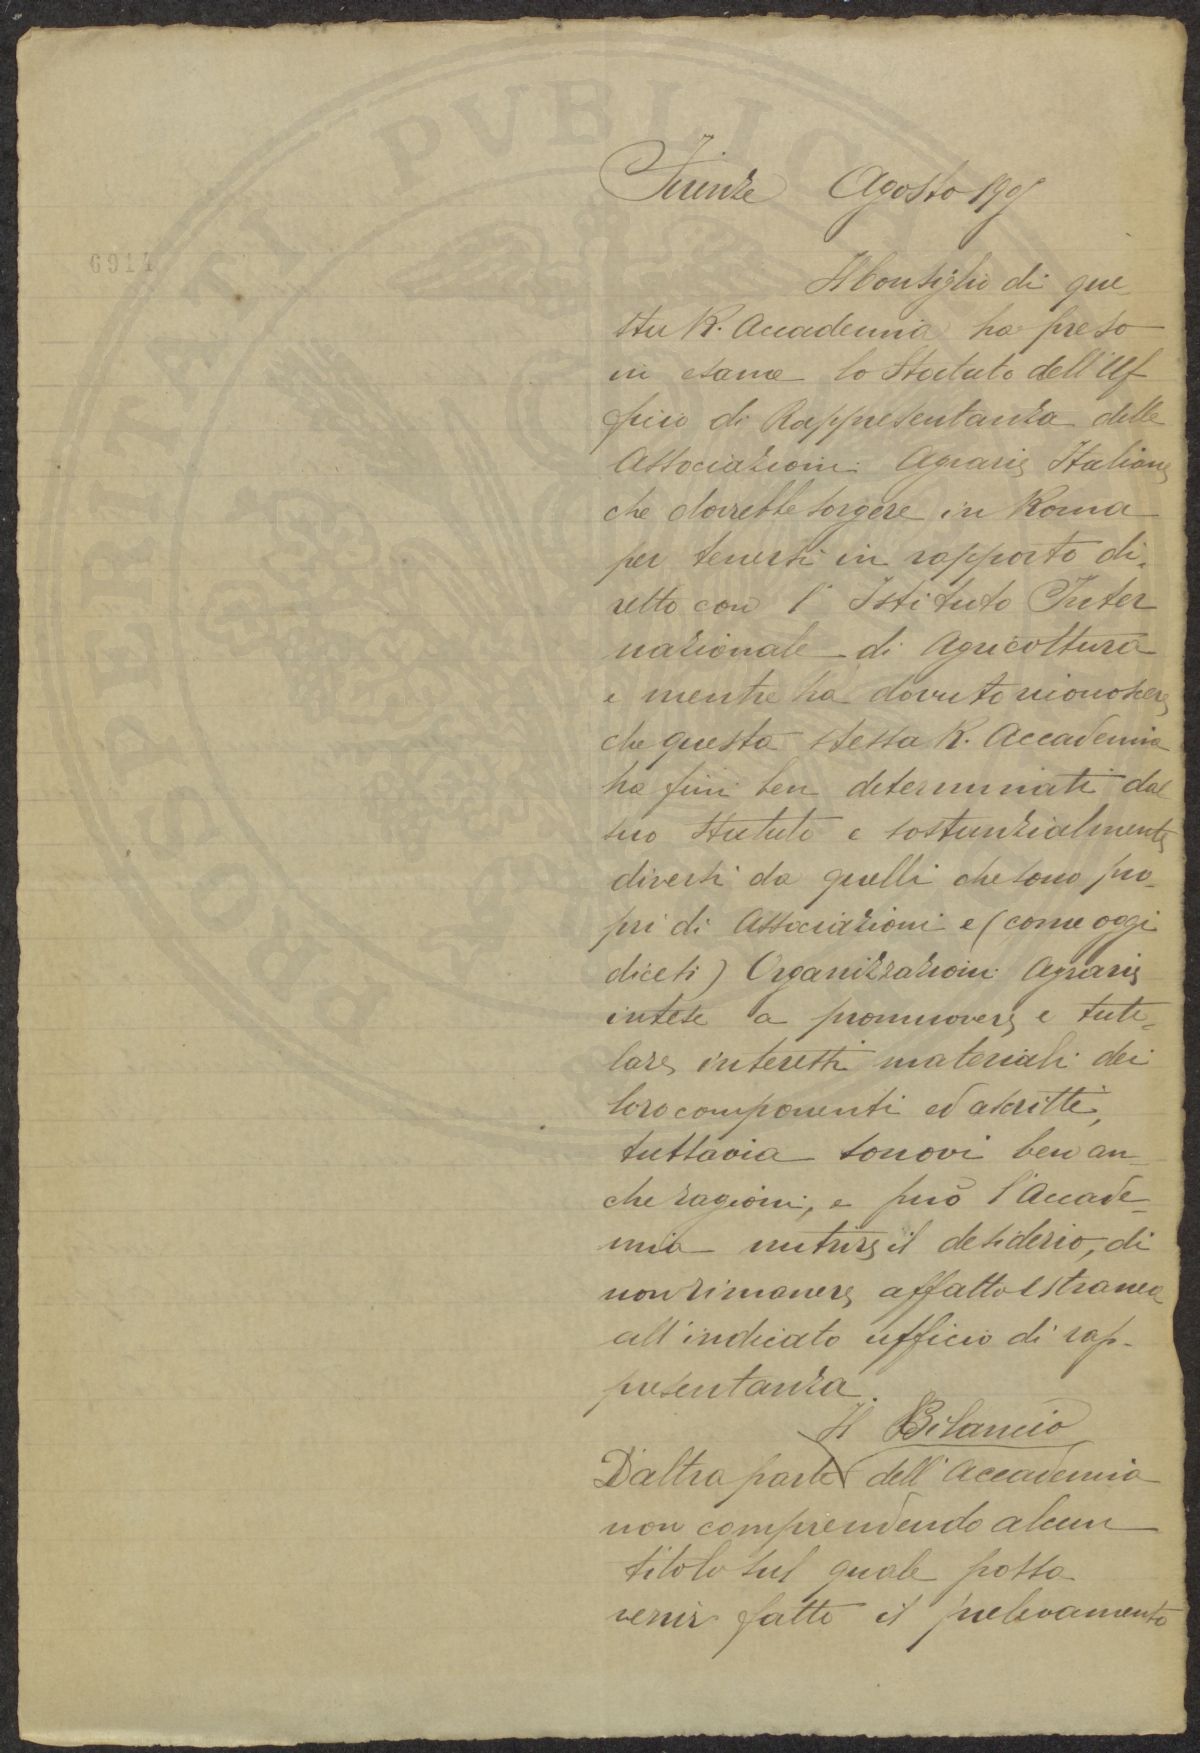 Firenze Agosto 190
6911
Il Consiglio di que
sta R. Accademia ha preso
in esame lo Statuto dell'Uf
ficio di Rappresentanza delle
Associazioni Agrarie Italiane
che dovrebbe sorgere in Roma
per tenersi in rapporto di-
retto con l'Istituto Inter
nazionale di Agricoltura
e mentre ha dovuto riconoscere
che questa stessa R. Accademia
ha fini ben determinati dal
suo Statuto e sostanzialmente
diversi da quelli che sono pro-
pri di Associazioni e (come oggi
dicesi) Organizzazioni Agrarie
intese a promuovere e tute-
lare interessi materiali dei
loro componenti ed ascritti,
tuttavia sonovi ben an-
che ragioni, e può l'Accade-
mia nutrire il desiderio, di
non rimanere affatto estranea
all'indicato ufficio di rap-
presentanza.
Il Bilancio
D'altra parte dell'Accademia
non comprendendo alcun
titolo sul quale possa
venir fatto il prelevamento
PROSPERITATI PVBLICAE